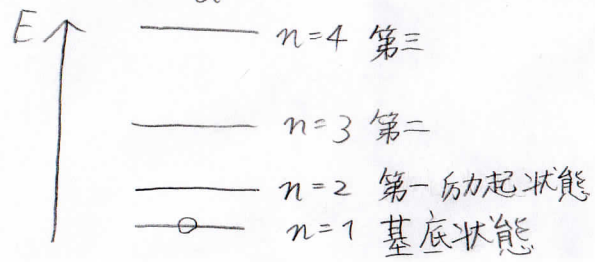 E
n=4 第三
n=3 第二
n=2 第一励起状態
n=1 基底状態